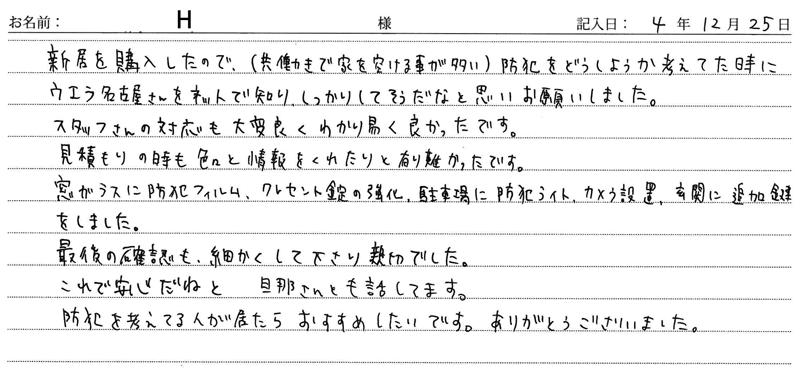 お名前： H 様 記入日： 4 年 12 月 25 日
新居を購入したので、(共働きで家を空ける事が多い) 防犯をどうしようか考えてた時に
ウエラ名古屋さんをネットで知り、しっかりしてそうだなと思いお願いしました。
スタッフさんの対応も大変良くわかり易く良かったです。
見積もりの時も色々と情報をくれたりと有り難かったです。
窓ガラスに防犯フィルム、クレセント錠の強化、駐車場に防犯ライト、カメラ設置、玄関に追加鍵
をしました。
最後の確認も、細かくして下さり親切でした。
これで安心だねと 旦那さんとも話してます。
防犯を考えてる人が居たらおすすめしたいです。ありがとうございました。